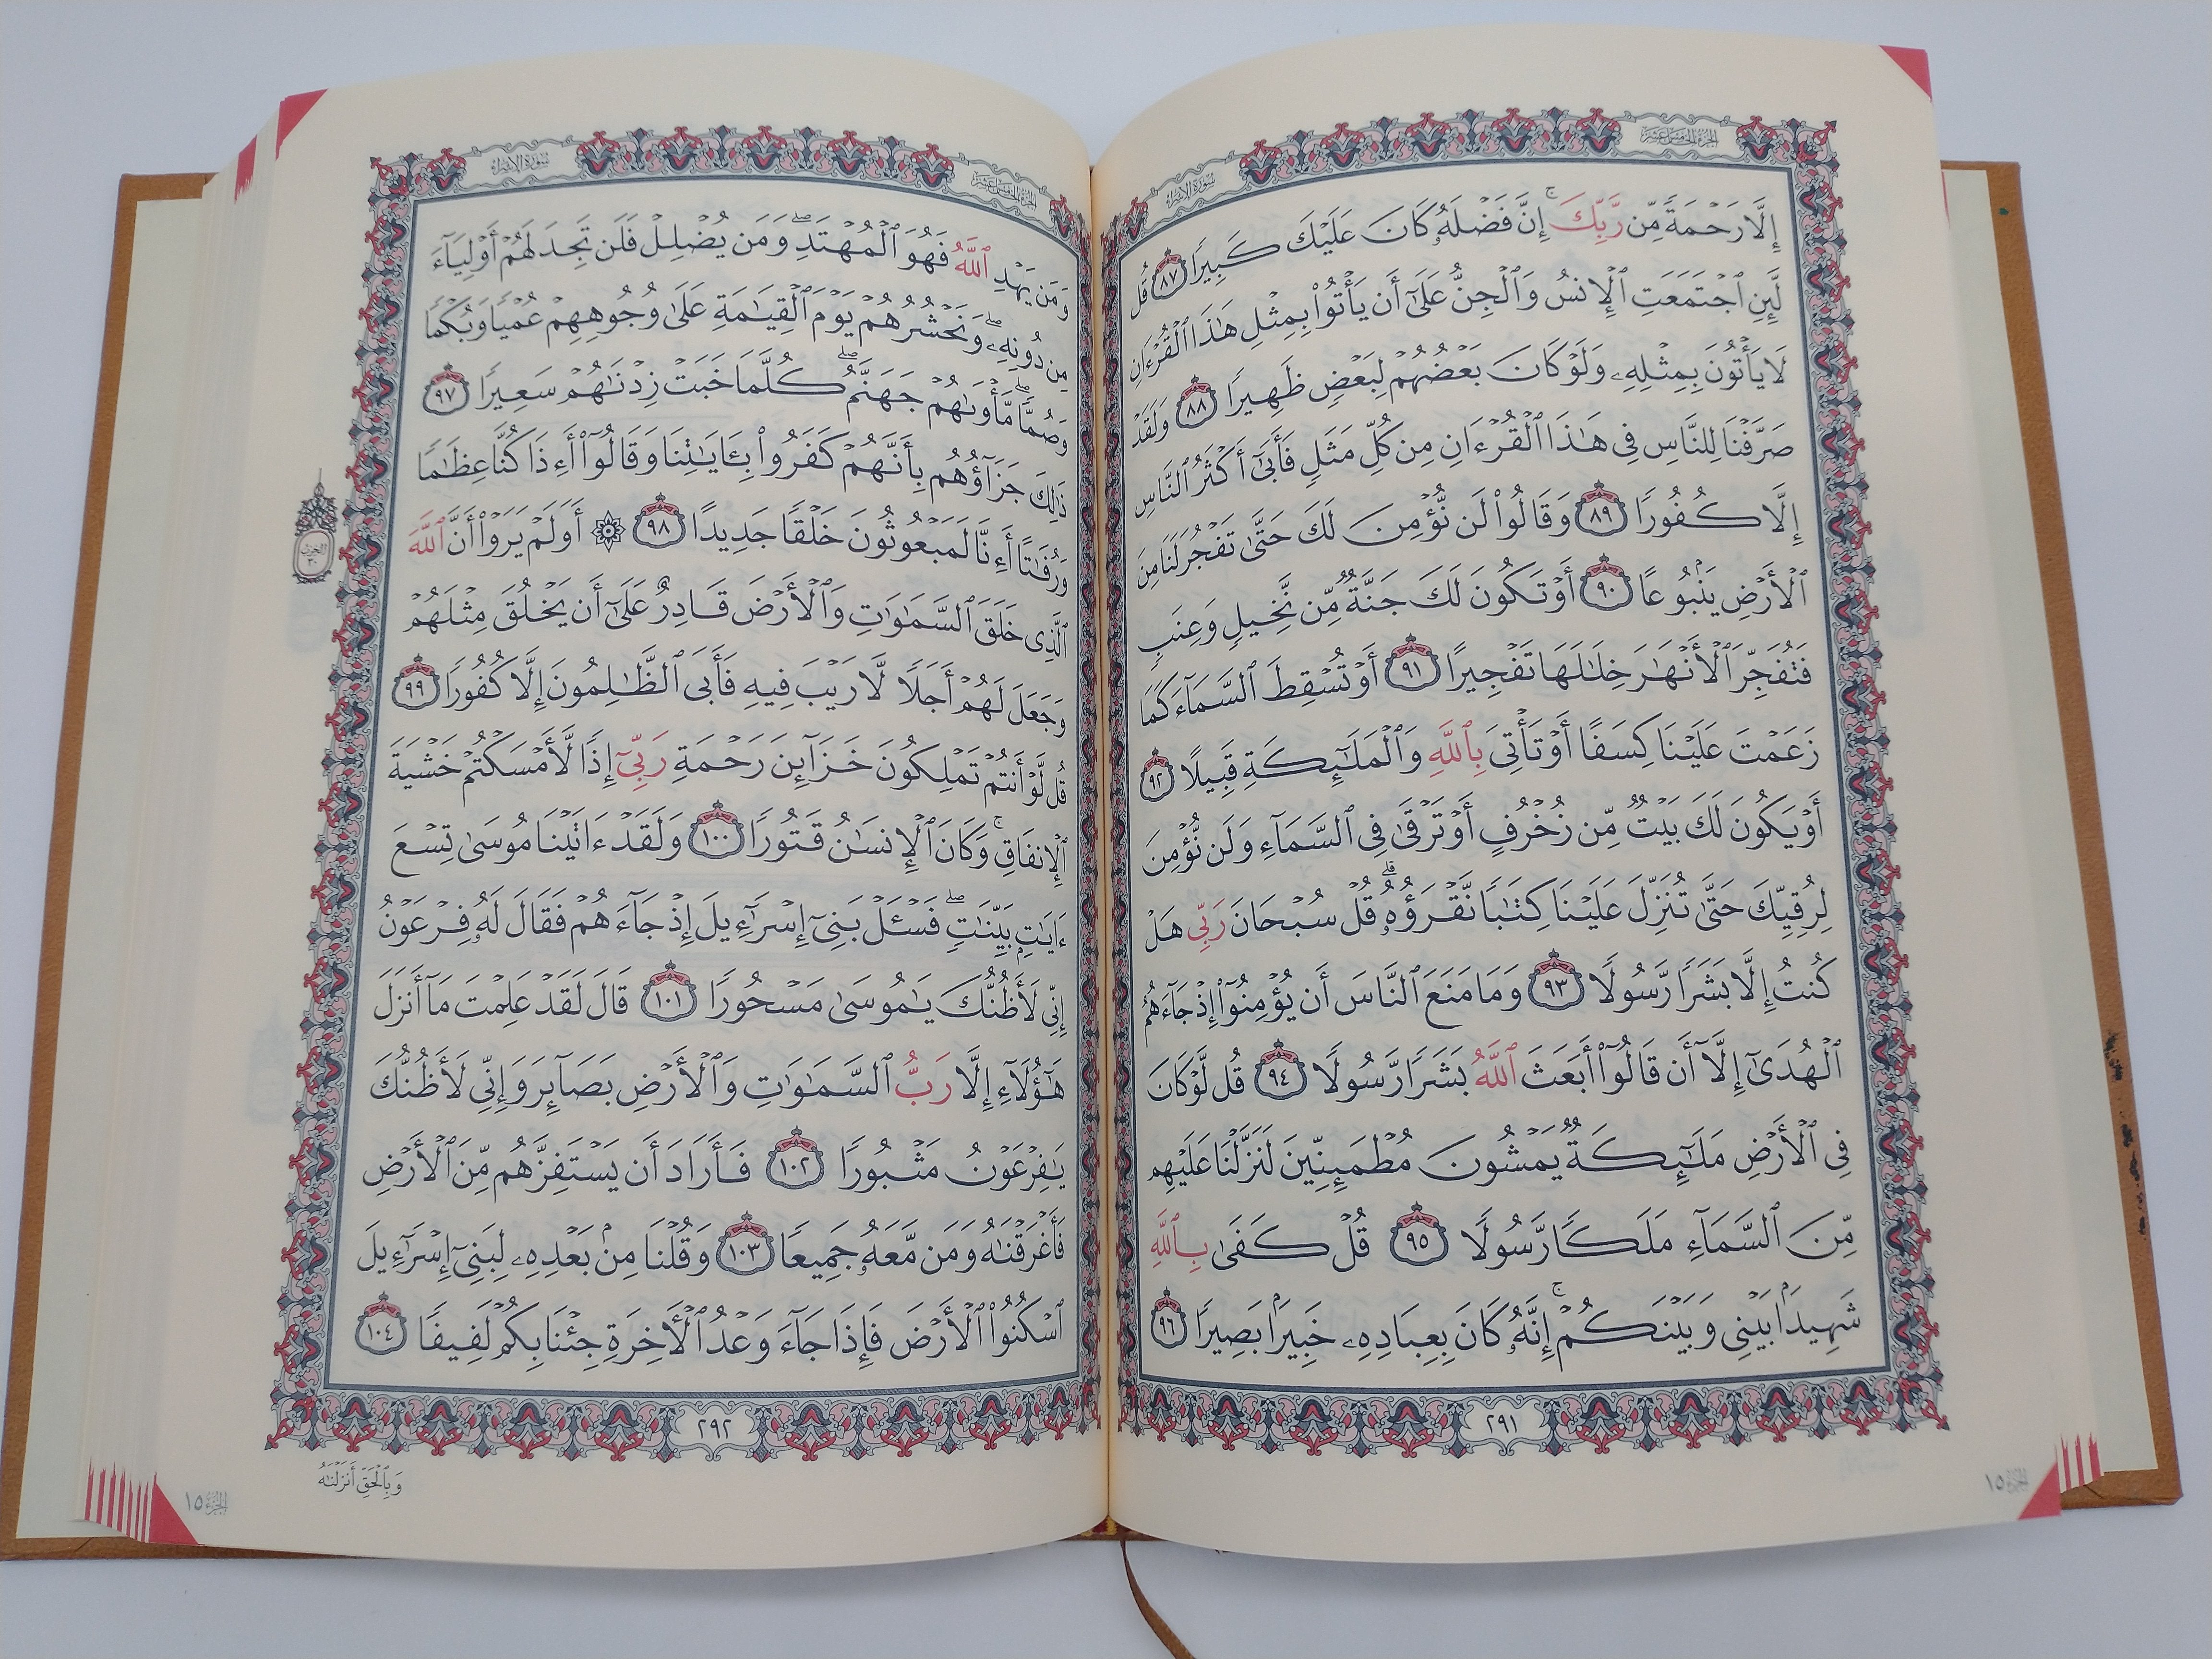 الجزء الخامس عشر
سورة الإسراء
إِلَّا رَحْمَةً مِّن رَّبِّكَ ۚ إِنَّ فَضْلَهُۥ كَانَ عَلَيْكَ كَبِيرًا ٨٧ قُل
لَّئِنِ ٱجْتَمَعَتِ ٱلْإِنسُ وَٱلْجِنُّ عَلَىٰٓ أَن يَأْتُوا۟ بِمِثْلِ هَٰذَا ٱلْقُرْءَانِ
لَا يَأْتُونَ بِمِثْلِهِۦ وَلَوْ كَانَ بَعْضُهُمْ لِبَعْضٍ ظَهِيرًا ٨٨ وَلَقَدْ
صَرَّفْنَا لِلنَّاسِ فِى هَٰذَا ٱلْقُرْءَانِ مِن كُلِّ مَثَلٍ فَأَبَىٰٓ أَكْثَرُ ٱلنَّاسِ
إِلَّا كُفُورًا ٨٩ وَقَالُوا۟ لَن نُّؤْمِنَ لَكَ حَتَّىٰ تَفْجُرَ لَنَا مِنَ
ٱلْأَرْضِ يَنۢبُوعًا ٩٠ أَوْ تَكُونَ لَكَ جَنَّةٌ مِّن نَّخِيلٍ وَعِنَبٍ
فَتُفَجِّرَ ٱلْأَنْهَٰرَ خِلَٰلَهَا تَفْجِيرًا ٩١ أَوْ تُسْقِطَ ٱلسَّمَآءَ كَمَا
زَعَمْتَ عَلَيْنَا كِسَفًا أَوْ تَأْتِىَ بِٱللَّهِ وَٱلْمَلَٰٓئِكَةِ قَبِيلًا ٩٢
أَوْ يَكُونَ لَكَ بَيْتٌ مِّن زُخْرُفٍ أَوْ تَرْقَىٰ فِى ٱلسَّمَآءِ وَلَن نُّؤْمِنَ
لِرُقِيِّكَ حَتَّىٰ تُنَزِّلَ عَلَيْنَا كِتَٰبًا نَّقْرَؤُهُۥ ۗ قُلْ سُبْحَانَ رَبِّى هَلْ
كُنتُ إِلَّا بَشَرًا رَّسُولًا ٩٣ وَمَا مَنَعَ ٱلنَّاسَ أَن يُؤْمِنُوٓا۟ إِذْ جَآءَهُمُ
ٱلْهُدَىٰٓ إِلَّآ أَن قَالُوٓا۟ أَبَعَثَ ٱللَّهُ بَشَرًا رَّسُولًا ٩٤ قُل لَّوْ كَانَ
فِى ٱلْأَرْضِ مَلَٰٓئِكَةٌ يَمْشُونَ مُطْمَئِنِّينَ لَنَزَّلْنَا عَلَيْهِم
مِّنَ ٱلسَّمَآءِ مَلَكًا رَّسُولًا ٩٥ قُلْ كَفَىٰ بِٱللَّهِ
شَهِيدًۢا بَيْنِى وَبَيْنَكُمْ ۚ إِنَّهُۥ كَانَ بِعِبَادِهِۦ خَبِيرًۢا بَصِيرًا ٩٦
٢٩١
الجزء ١٥
الجزء الخامس عشر
سورة الإسراء
وَمَن يَهْدِ ٱللَّهُ فَهُوَ ٱلْمُهْتَدِ ۖ وَمَن يُضْلِلْ فَلَن تَجِدَ لَهُمْ أَوْلِيَآءَ
مِن دُونِهِۦ ۖ وَنَحْشُرُهُمْ يَوْمَ ٱلْقِيَٰمَةِ عَلَىٰ وُجُوهِهِمْ عُمْيًا وَبُكْمًا
وَصُمًّا ۖ مَّأْوَىٰهُمْ جَهَنَّمُ ۖ كُلَّمَا خَبَتْ زِدْنَٰهُمْ سَعِيرًا ٩٧
ذَٰلِكَ جَزَآؤُهُم بِأَنَّهُمْ كَفَرُوا۟ بِـَٔايَٰتِنَا وَقَالُوٓا۟ أَءِذَا كُنَّا عِظَٰمًا
وَرُفَٰتًا أَءِنَّا لَمَبْعُوثُونَ خَلْقًا جَدِيدًا ٩٨ ۞ أَوَلَمْ يَرَوْا۟ أَنَّ ٱللَّهَ
ٱلَّذِى خَلَقَ ٱلسَّمَٰوَٰتِ وَٱلْأَرْضَ قَادِرٌ عَلَىٰٓ أَن يَخْلُقَ مِثْلَهُمْ
وَجَعَلَ لَهُمْ أَجَلًا لَّا رَيْبَ فِيهِ فَأَبَى ٱلظَّٰلِمُونَ إِلَّا كُفُورًا ٩٩
قُل لَّوْ أَنتُمْ تَمْلِكُونَ خَزَآئِنَ رَحْمَةِ رَبِّىٓ إِذًا لَّأَمْسَكْتُمْ خَشْيَةَ
ٱلْإِنفَاقِ ۚ وَكَانَ ٱلْإِنسَٰنُ قَتُورًا ١٠٠ وَلَقَدْ ءَاتَيْنَا مُوسَىٰ تِسْعَ
ءَايَٰتٍۭ بَيِّنَٰتٍ ۖ فَسْـَٔلْ بَنِىٓ إِسْرَٰٓءِيلَ إِذْ جَآءَهُمْ فَقَالَ لَهُۥ فِرْعَوْنُ
إِنِّى لَأَظُنُّكَ يَٰمُوسَىٰ مَسْحُورًا ١٠١ قَالَ لَقَدْ عَلِمْتَ مَآ أَنزَلَ
هَٰٓؤُلَآءِ إِلَّا رَبُّ ٱلسَّمَٰوَٰتِ وَٱلْأَرْضِ بَصَآئِرَ وَإِنِّى لَأَظُنُّكَ
يَٰفِرْعَوْنُ مَثْبُورًا ١٠٢ فَأَرَادَ أَن يَسْتَفِزَّهُم مِّنَ ٱلْأَرْضِ
فَأَغْرَقْنَٰهُ وَمَن مَّعَهُۥ جَمِيعًا ١٠٣ وَقُلْنَا مِنۢ بَعْدِهِۦ لِبَنِىٓ إِسْرَٰٓءِيلَ
ٱسْكُنُوا۟ ٱلْأَرْضَ فَإِذَا جَآءَ وَعْدُ ٱلْـَٔاخِرَةِ جِئْنَا بِكُمْ لَفِيفًا ١٠٤
الحزب
٣٠
٢٩٢
وَبِٱلْحَقِّ أَنزَلْنَٰهُ
الجزء ١٥